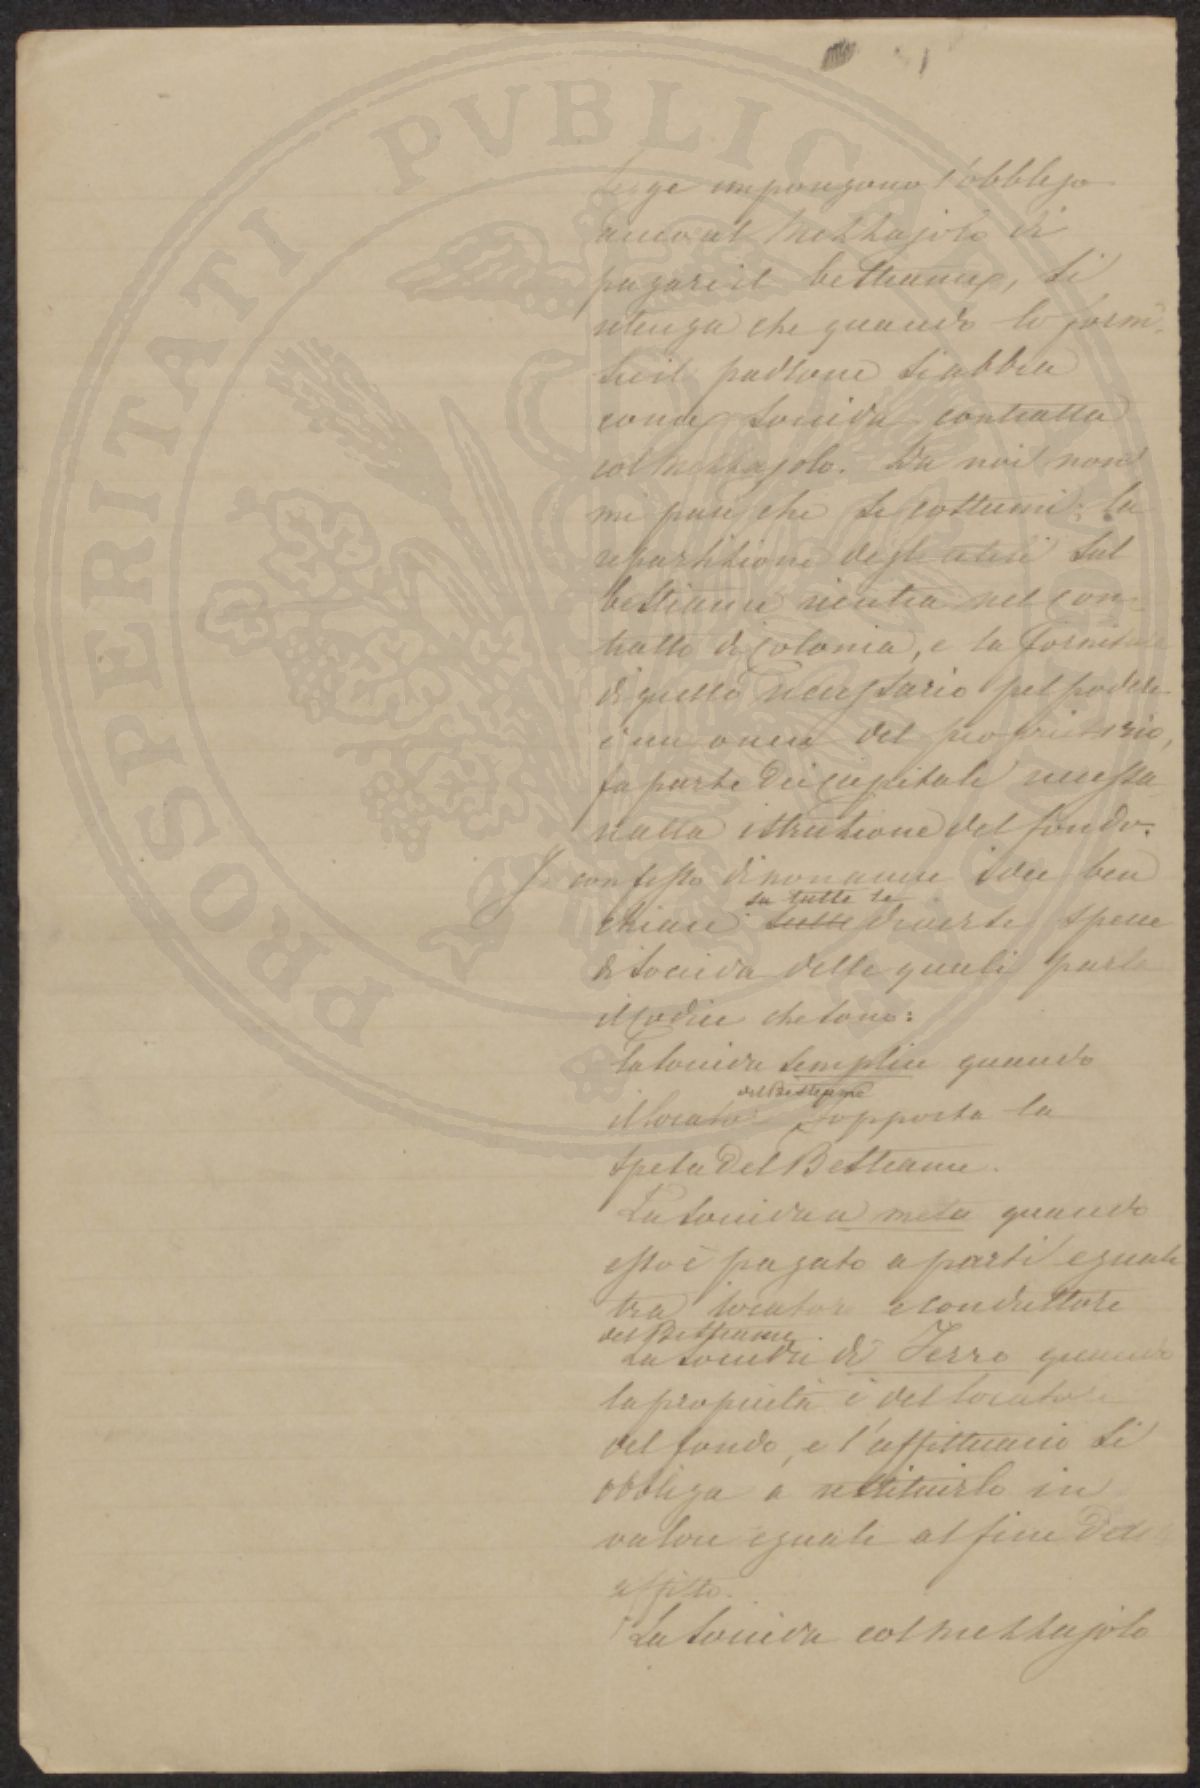 PROSPERITATI PVBLICAE
legge impongono l'obbligo
anco al Mezzajolo di
pagare il bestiame, si
ritenga che quando lo forni-
sce il padrone si abbia
come soccida contratta
col Mezzajolo. Da noi non
mi pare che si costumi: la
repartizione degli utili sul
bestiame rientra nel con-
tratto di Colonia, e la fornitura
di quello necessario pel podere
è un onere del proprietario,
fa parte dei capitali necessa
nella istruzione del fondo.
Io confesso di non avere idee ben
su tutte le
chiare sulle diverse specie
di Soccida delle quali parla
il Codice che sono:
La Soccida semplice quando
del Bestiame
il locatore sopporta la
spesa del Bestiame.
La Soccida a metà quando
esso è pagato a parti eguali
tra locatore e conduttore
del Bestiame
La Soccida di Ferro quando
la proprietà è del locatore
del fondo, e l'affittuario si
obbliga a restituirlo in
valore eguale al fine del
affitto.
La Soccida col Mezzajolo